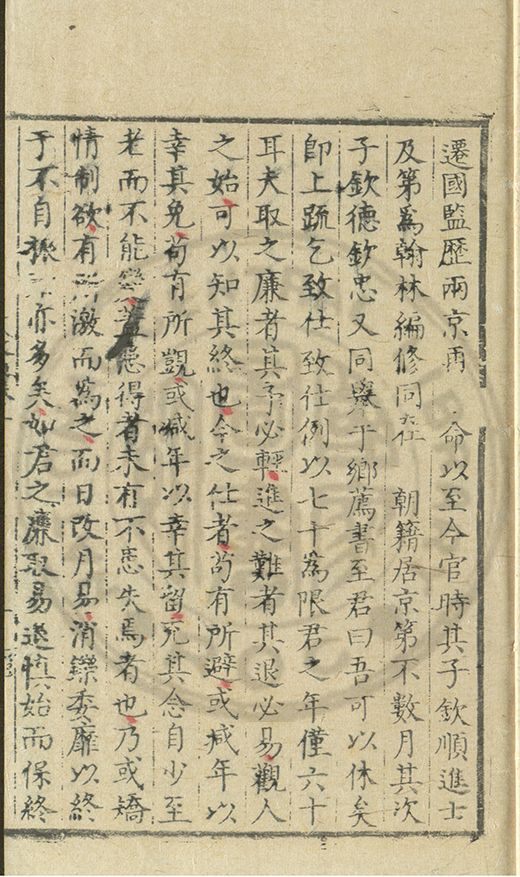 遷國監歷兩京再 命以至今官時其子欽順進士
及第為翰林編修同在 朝籍居京第不數月其次
子欽德欽忠又同舉于鄉薦書至君曰吾可以休矣
即上疏乞致仕致仕例以七十為限君之年僅六十
耳夫取之廉者其予必輕進之難者其退必易觀人
之始可以知其終也今之仕者苟有所避或減年以
幸其免苟有所覬或減年以幸其留死其念自少至
老而不能 患得者未有不患失焉者也乃或矯
情制欲有所激而為之而日改月易消鑠委靡以終
于不自 亦多矣如君之廉取易退慎始而保終